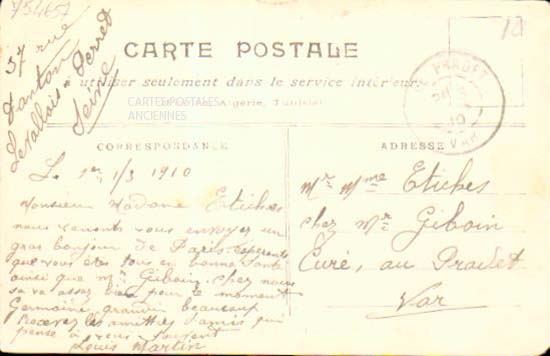 754657
37 rue
Danton
Levallois-Perret
Seine
10
CARTE POSTALE
utiliser seulement dans le service intérieur
Algérie, Tunisie
CARTES POSTALES
ANCIENNES
PRADET
10
VAR
CORRESPONDANCE
ADRESSE
Le 1er 1/3 1910
Monsieur Madame Etiches
nous venons vous envoyer un
gros bonjour de Paris esperant
que vous êtes tous en bonne santé
ainsi que Mr Giboin, chez nous
sa va assez bien pour le moment
Germaine grandie beaucoup
recevez les amitiés d'amis qui
pense à vous souvent
Louis Martin
Mr Mme Etiches
chez Mr Giboin
Curé, au Pradet
Var